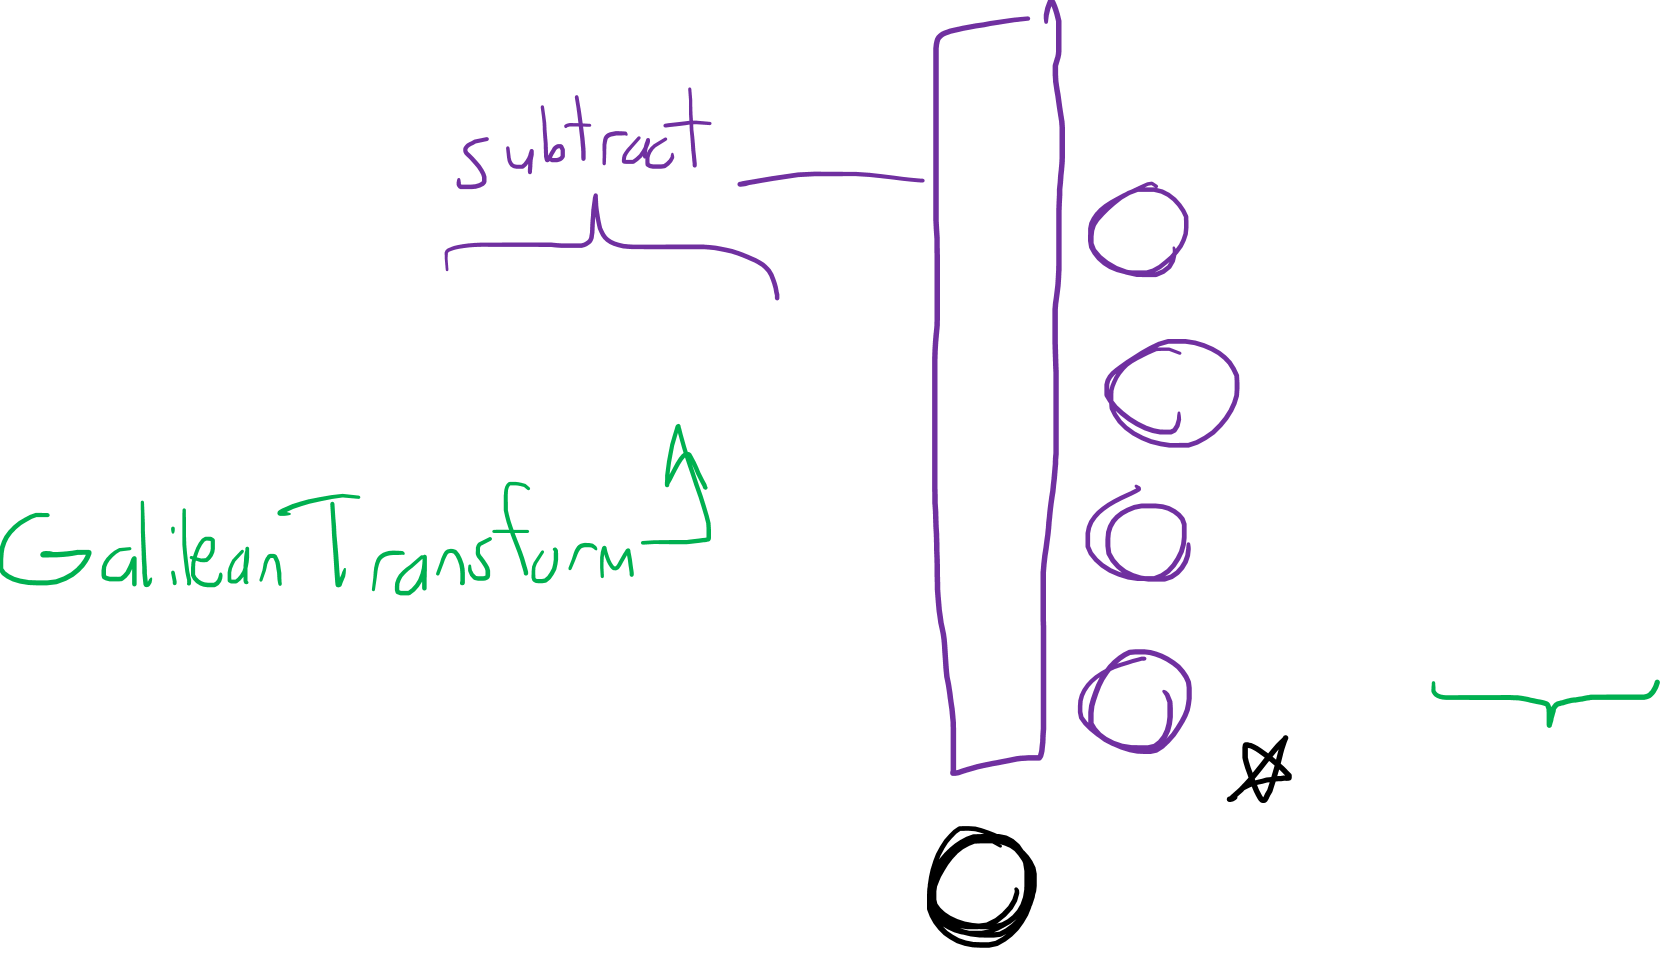 subtract
Galilean Transform